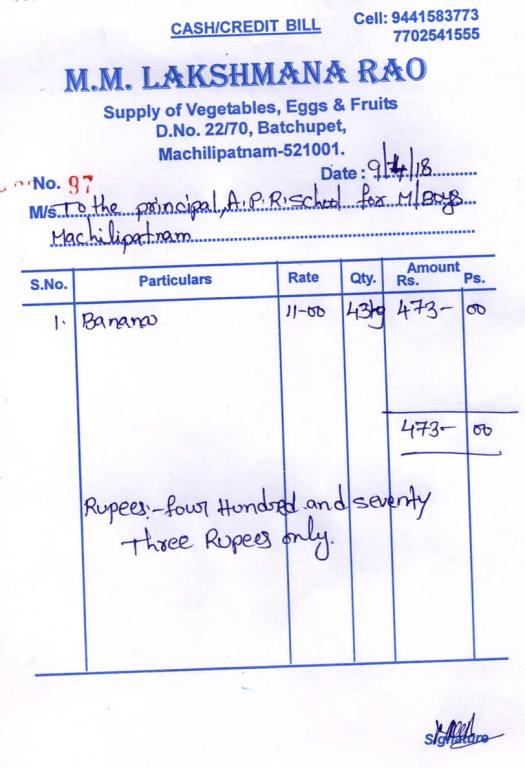 CASH/CREDIT BILL
Cell: 9441583773
7702541555
M.M. LAKSHMANA RAO
Supply of Vegetables, Eggs & Fruits
D.No. 22/70, Batchupet,
Machilipatnam-521001.
No. 97
Date: 9/4/18
M/s. To the principal, A.P.R. School for M/Boys
Machilipatnam
S.No. Particulars Rate Qty. Amount Rs. Ps.
1. Banana 11-00 43kg 473- 00
473- 00
Rupees:- four Hundred and seventy
Three Rupees only.
Signature